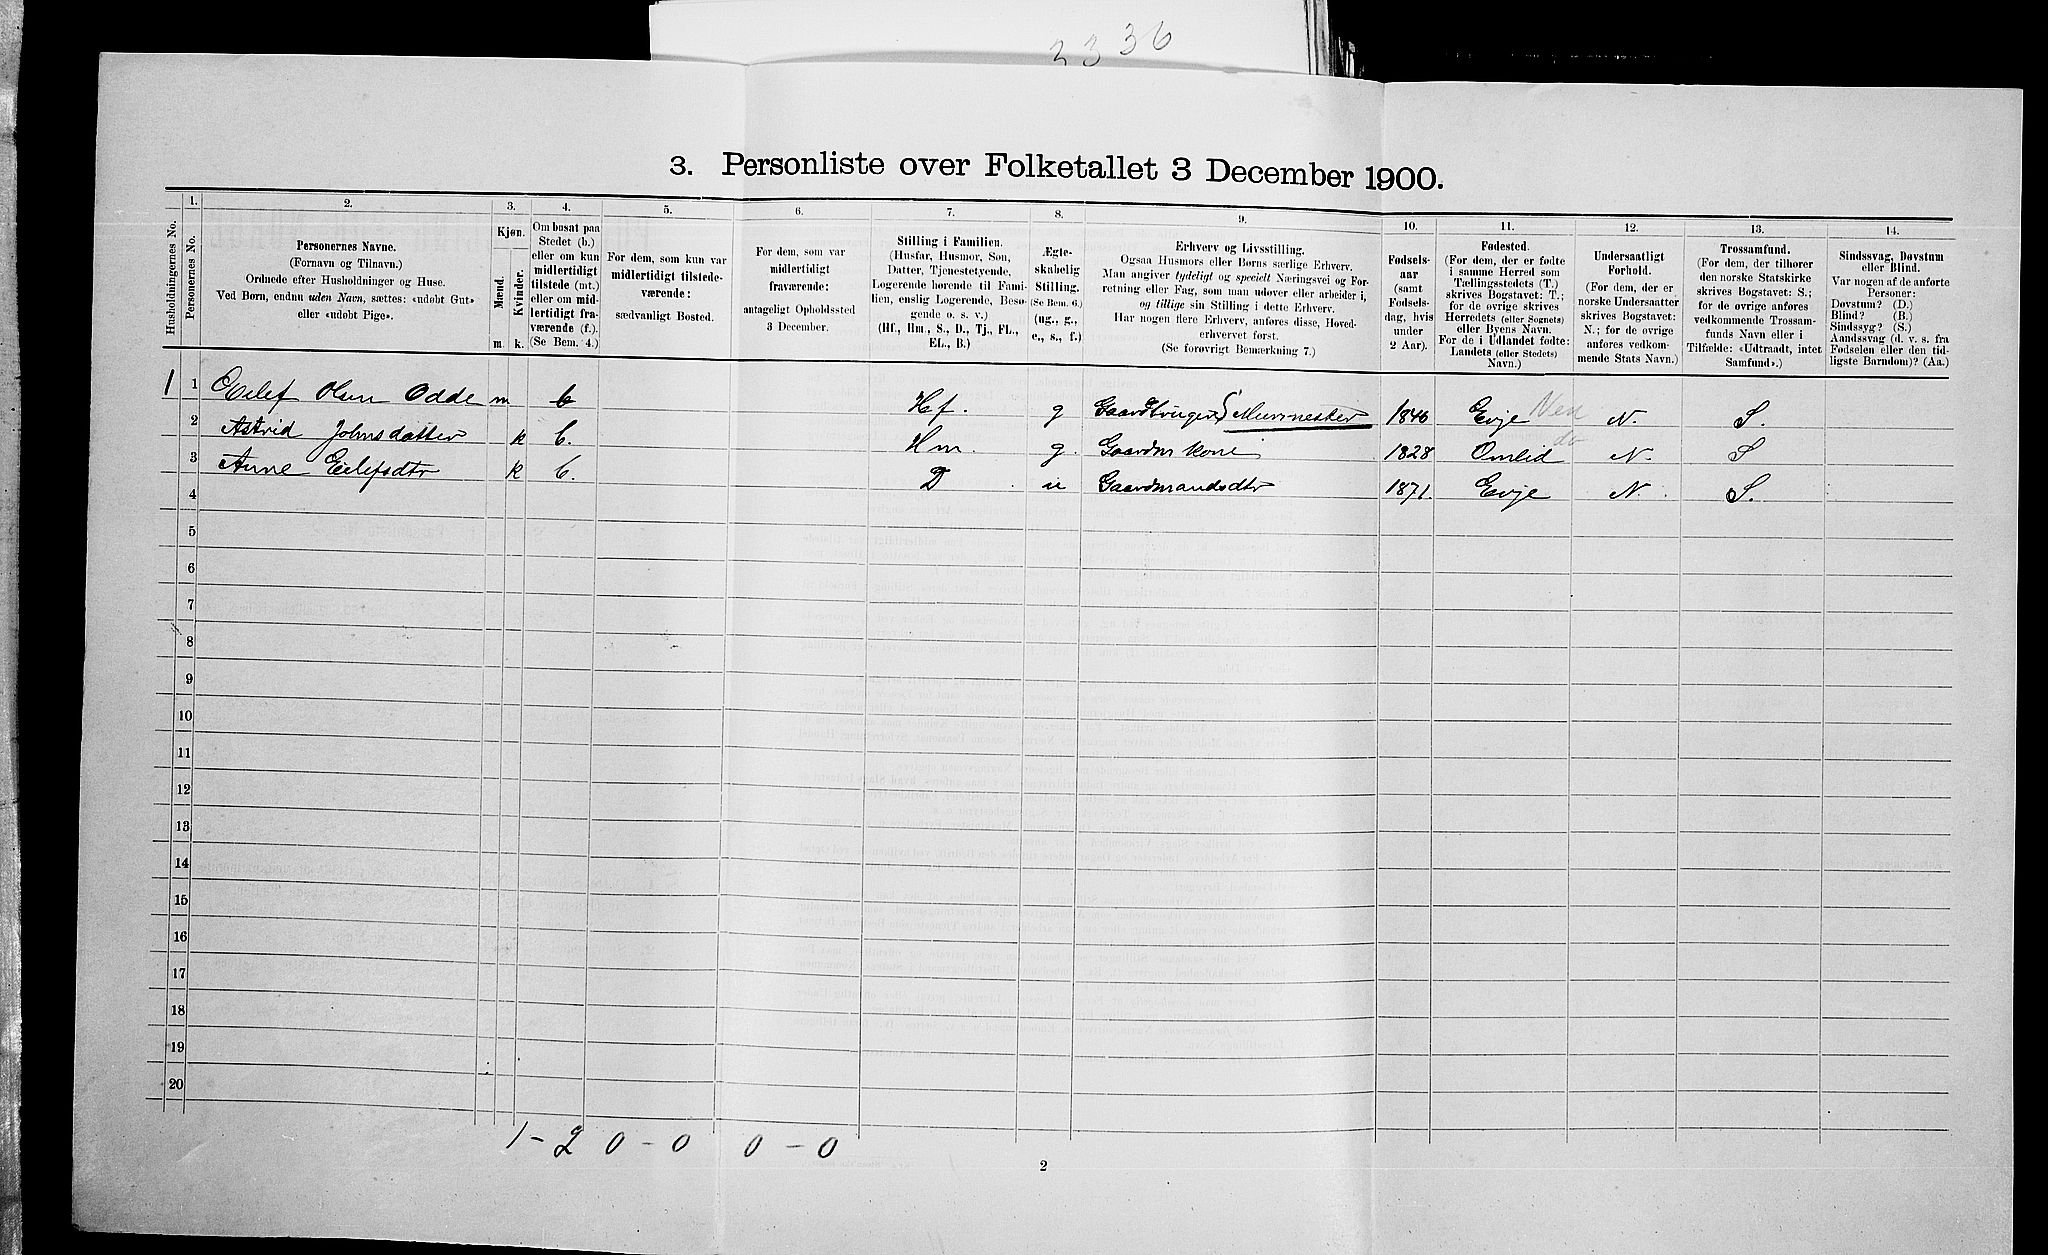 2336
3. Personliste over Folketallet 3 December 1900.
Husholdningernes No.
1.
Personernes No.
2.
Personernes Navne.
(Fornavn og Tilnavn.)
Ordnede efter Husholdninger og Huse.
Ved Børn, endnu uden Navn, sættes: «udøbt Gut»
eller «udøbt Pige».
3.
Kjøn.
Mænd.
Kvinder.
m.
k.
4.
Om bosat paa
Stedet (b.)
eller om kun
midlertidigt
tilstede (mt.)
eller om mid-
lertidigt fra-
værende (f.).
(Se Bem. 4.)
5.
For dem, som kun var
midlertidigt tilstede-
værende:
sædvanligt Bosted.
6.
For dem, som var
midlertidigt
fraværende:
antageligt Opholdssted
3 December.
7.
Stilling i Familien.
(Husfar, Husmor, Søn,
Datter, Tjenestetyende,
Logerende hørende til Fami-
lien, enslig Logerende, Besø-
gende o. s. v.)
(Hf., Hm., S., D., Tj., FL.,
EL., B.)
8.
Ægte-
skabelig
Stilling.
(Se Bem. 6.)
(ug., g.,
e., s., f.)
9.
Erhverv og Livsstilling.
Ogsaa Husmors eller Børns særlige Erhverv.
Man angiver tydeligt og specielt Næringsvei og For-
retning eller Fag, som man udøver eller arbeider i,
og tillige sin Stilling i dette Erhverv.
Har nogen flere Erhverv, anføres disse, Hoved-
erhvervet først.
(Se forøvrigt Bemærkning 7.)
10.
Fødsels-
aar
(samt
Fødsels-
dag, hvis
under
2 Aar).
11.
Fødested.
(For dem, der er fødte
i samme Herred som
Tællingsstedets (T.)
skrives Bogstavet: T.;
for de øvrige skrives
Herredets (eller Sognets)
eller Byens Navn.
For de i Udlandet fødte:
Landets (eller Stedets)
Navn.)
12.
Undersaatligt
Forhold.
(For dem, der er
norske Undersaatter
skrives Bogstavet:
N.; for de øvrige
anføres vedkom-
mende Stats Navn.)
13.
Trossamfund.
(For dem, der tilhører
den norske Statskirke
skrives Bogstavet: S.;
for de øvrige anføres
vedkommende Trossam-
funds Navn eller i
Tilfælde: «Udtraadt, intet
Samfund».)
14.
Sindssvag, Døvstum
eller Blind.
Var nogen af de anførte
Personer:
Døvstum? (D.)
Blind? (B.)
Sindssyg? (S.)
Aandssvag (d. v. s. fra
Fødselen eller den tid-
ligste Barndom)? (Aa.)
1 1 Eilef Olsen Odde m b Hf. g Gaardbruger, Murmester 1846 Evje Ned N. S.
2 Astrid Johnsdatter k b. Hm. g. Gaardm kone 1828 Omlid do N S
3 Anne Eilefsdtr k b. D. u Gaardmandsdtr 1871. Evje N. S.
4
5
6
7
8
9
10
11
12
13
14
15
16
17
18
19
20
1 - 2 0 - 0 0 - 0
2